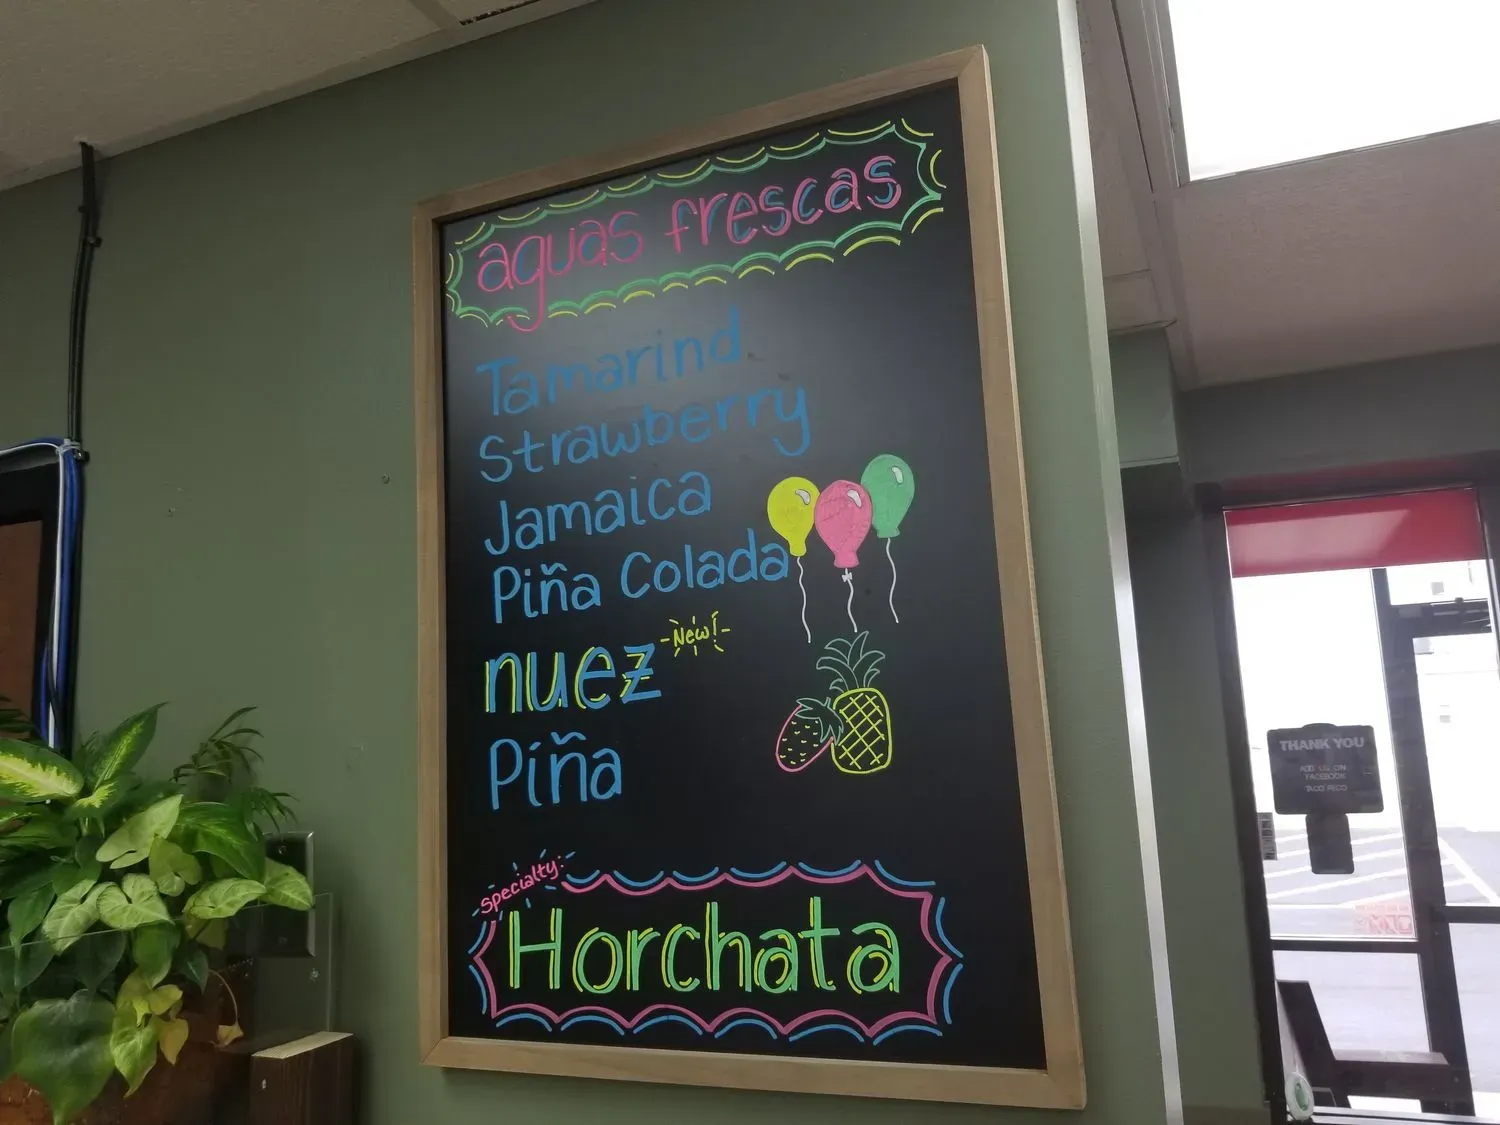 aguas frescas
Tamarind
Strawberry
Jamaica
Piña Colada
nuez
New!
Piña
Specialty:
Horchata
THANK YOU
ADD US ON
FACEBOOK
TACO RICO